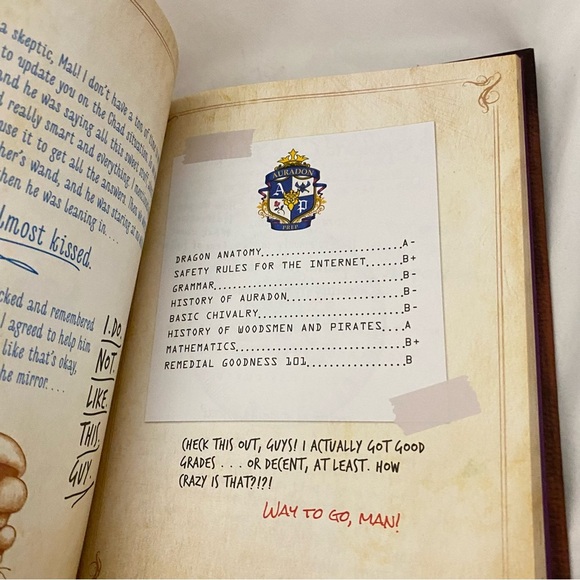 a skeptic, Mal! I don't have a ton of
to update you on the Chad situation.
and he was saying all this sweet stuff
really smart and everything. I
use it to get all the answers. Then
her's wand, and he was staring at
then he was leaning in. . . .
almost kissed.
cked and remembered
I agreed to help him
like that's okay,
he mirror. . . .
I. DO.
NOT.
LIKE.
THIS.
GUY.
AURADON
A P
PREP
DRAGON ANATOMY........................A-
SAFETY RULES FOR THE INTERNET......B+
GRAMMAR................................B-
HISTORY OF AURADON...................B-
BASIC CHIVALRY........................B-
HISTORY OF WOODSMEN AND PIRATES....A
MATHEMATICS...........................B+
REMEDIAL GOODNESS 101................B
CHECK THIS OUT, GUYS! I ACTUALLY GOT GOOD
GRADES . . . OR DECENT, AT LEAST. HOW
CRAZY IS THAT?!?!
WAY TO GO, MAN!